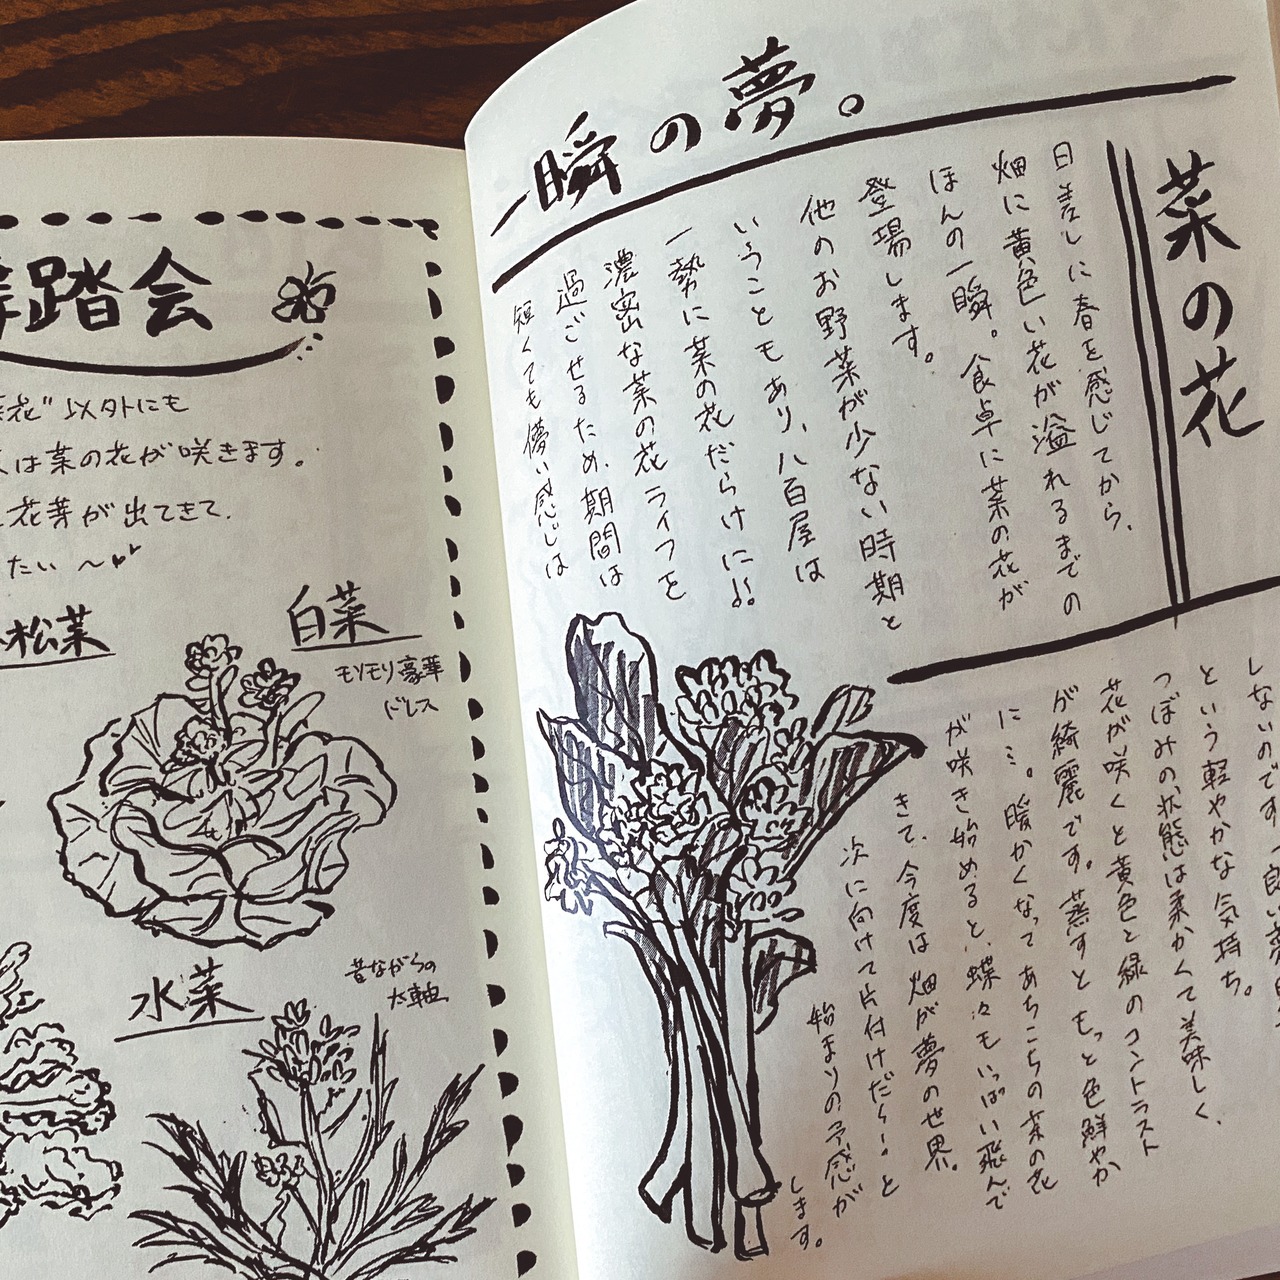 一瞬の夢。
菜の花
日差しに春を感じてから、
畑に黄色い花が溢れるまでの
ほんの一瞬。食卓に菜の花が
登場します。
他のお野菜が少ない時期と
いうこともあり、八百屋は
一勢に菜の花だらけに!!
濃密な菜の花ライフを
過ごせるため、期間は
短くても儚い感じは
しないのです。
という軽やかな気持ち。
つぼみの状態は柔かくて美味しく、
花が咲くと黄色と緑のコントラスト
が綺麗です。蒸すともっと色鮮やか
に…。暖かくなってあちこちの菜の花
が咲き始めると、蝶々もいっぱい飛んで
きて、今度は畑が夢の世界。
次に向けて片付けだら〜!と
始まりの予感が
します。
踏会
花"以外にも
は菜の花が咲きます。
花芽が出てきて、
たい〜♥♥
松菜
白菜
モリモリ豪華
ドレス
水菜
昔ながらの
太軸